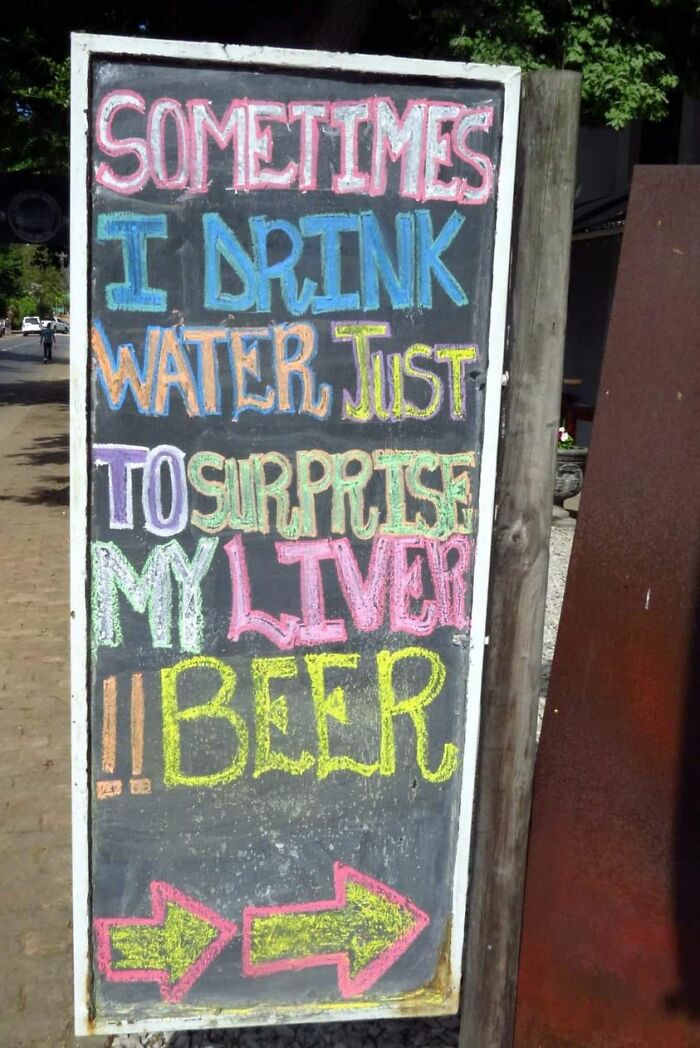 SOMETIMES
I DRINK
WATER JUST
TO SURPRISE
MY LIVER
!! BEER